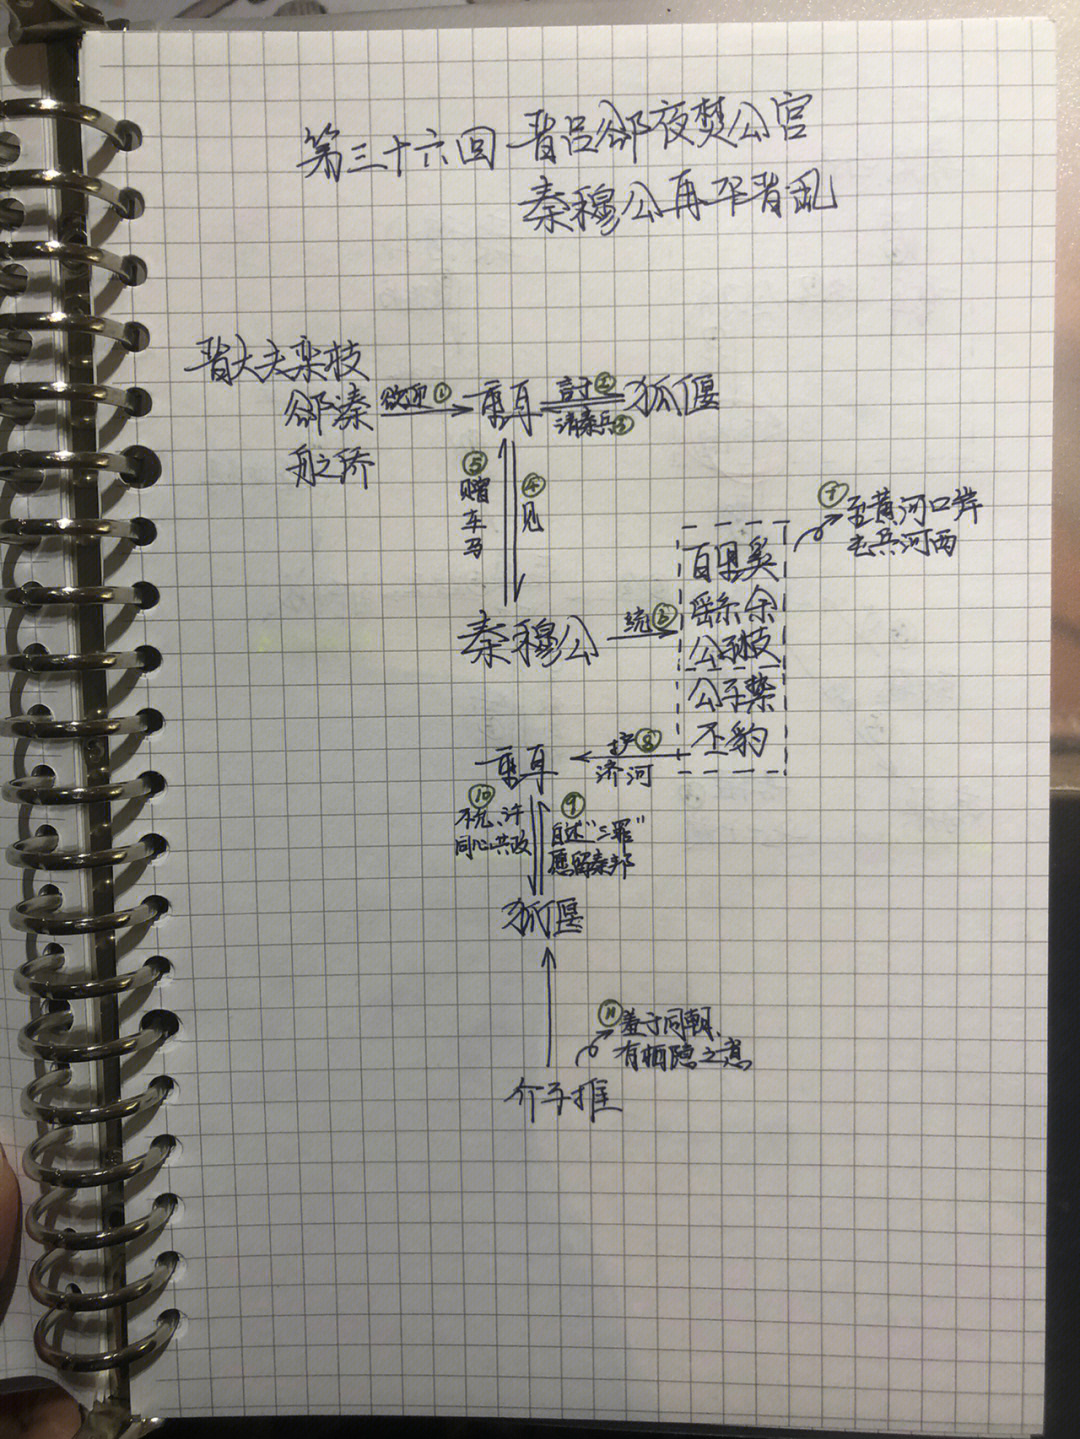 第三十六回 晋吕郤夜焚公宫
秦穆公再平晋乱
晋大夫栾枝
郤溱
舟之侨
欲迎①
重耳
讨②
请秦兵③
狐偃
⑤赠车马
④见
秦穆公
统⑥
百里奚
繇余
公子枝
公子絷
丕豹
⑦至黄河口岸
屯兵河西
护⑧
济河
重耳
⑩不允、许
同心共政
⑨自述“三罪”
愿留秦邦
狐偃
⑪羞于同朝、
有栖隐之意
介子推